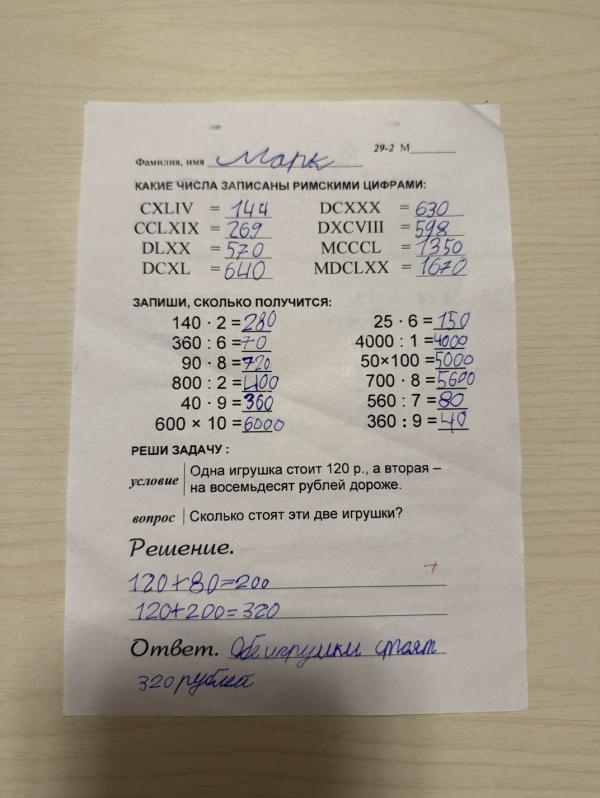 29-2 М
Фамилия, имя Марк
КАКИЕ ЧИСЛА ЗАПИСАНЫ РИМСКИМИ ЦИФРАМИ:
CXLIV = 144 DCXXX = 630
CCLXIX = 269 DXCVIII = 598
DLXX = 570 MCCCL = 1350
DCXL = 640 MDCLXX = 1670
ЗАПИШИ, СКОЛЬКО ПОЛУЧИТСЯ:
140 · 2 = 280 25 · 6 = 150
360 : 6 = 70 4000 : 1 = 4000
90 · 8 = 720 50×100 = 5000
800 : 2 = 400 700 · 8 = 5600
40 · 9 = 360 560 : 7 = 80
600 × 10 = 6000 360 : 9 = 40
РЕШИ ЗАДАЧУ :
условие Одна игрушка стоит 120 р., а вторая –
на восемьдесят рублей дороже.
вопрос Сколько стоят эти две игрушки?
Решение.
120+80=200 +
120+200=320
Ответ. Обе игрушки стоят
320 рублей